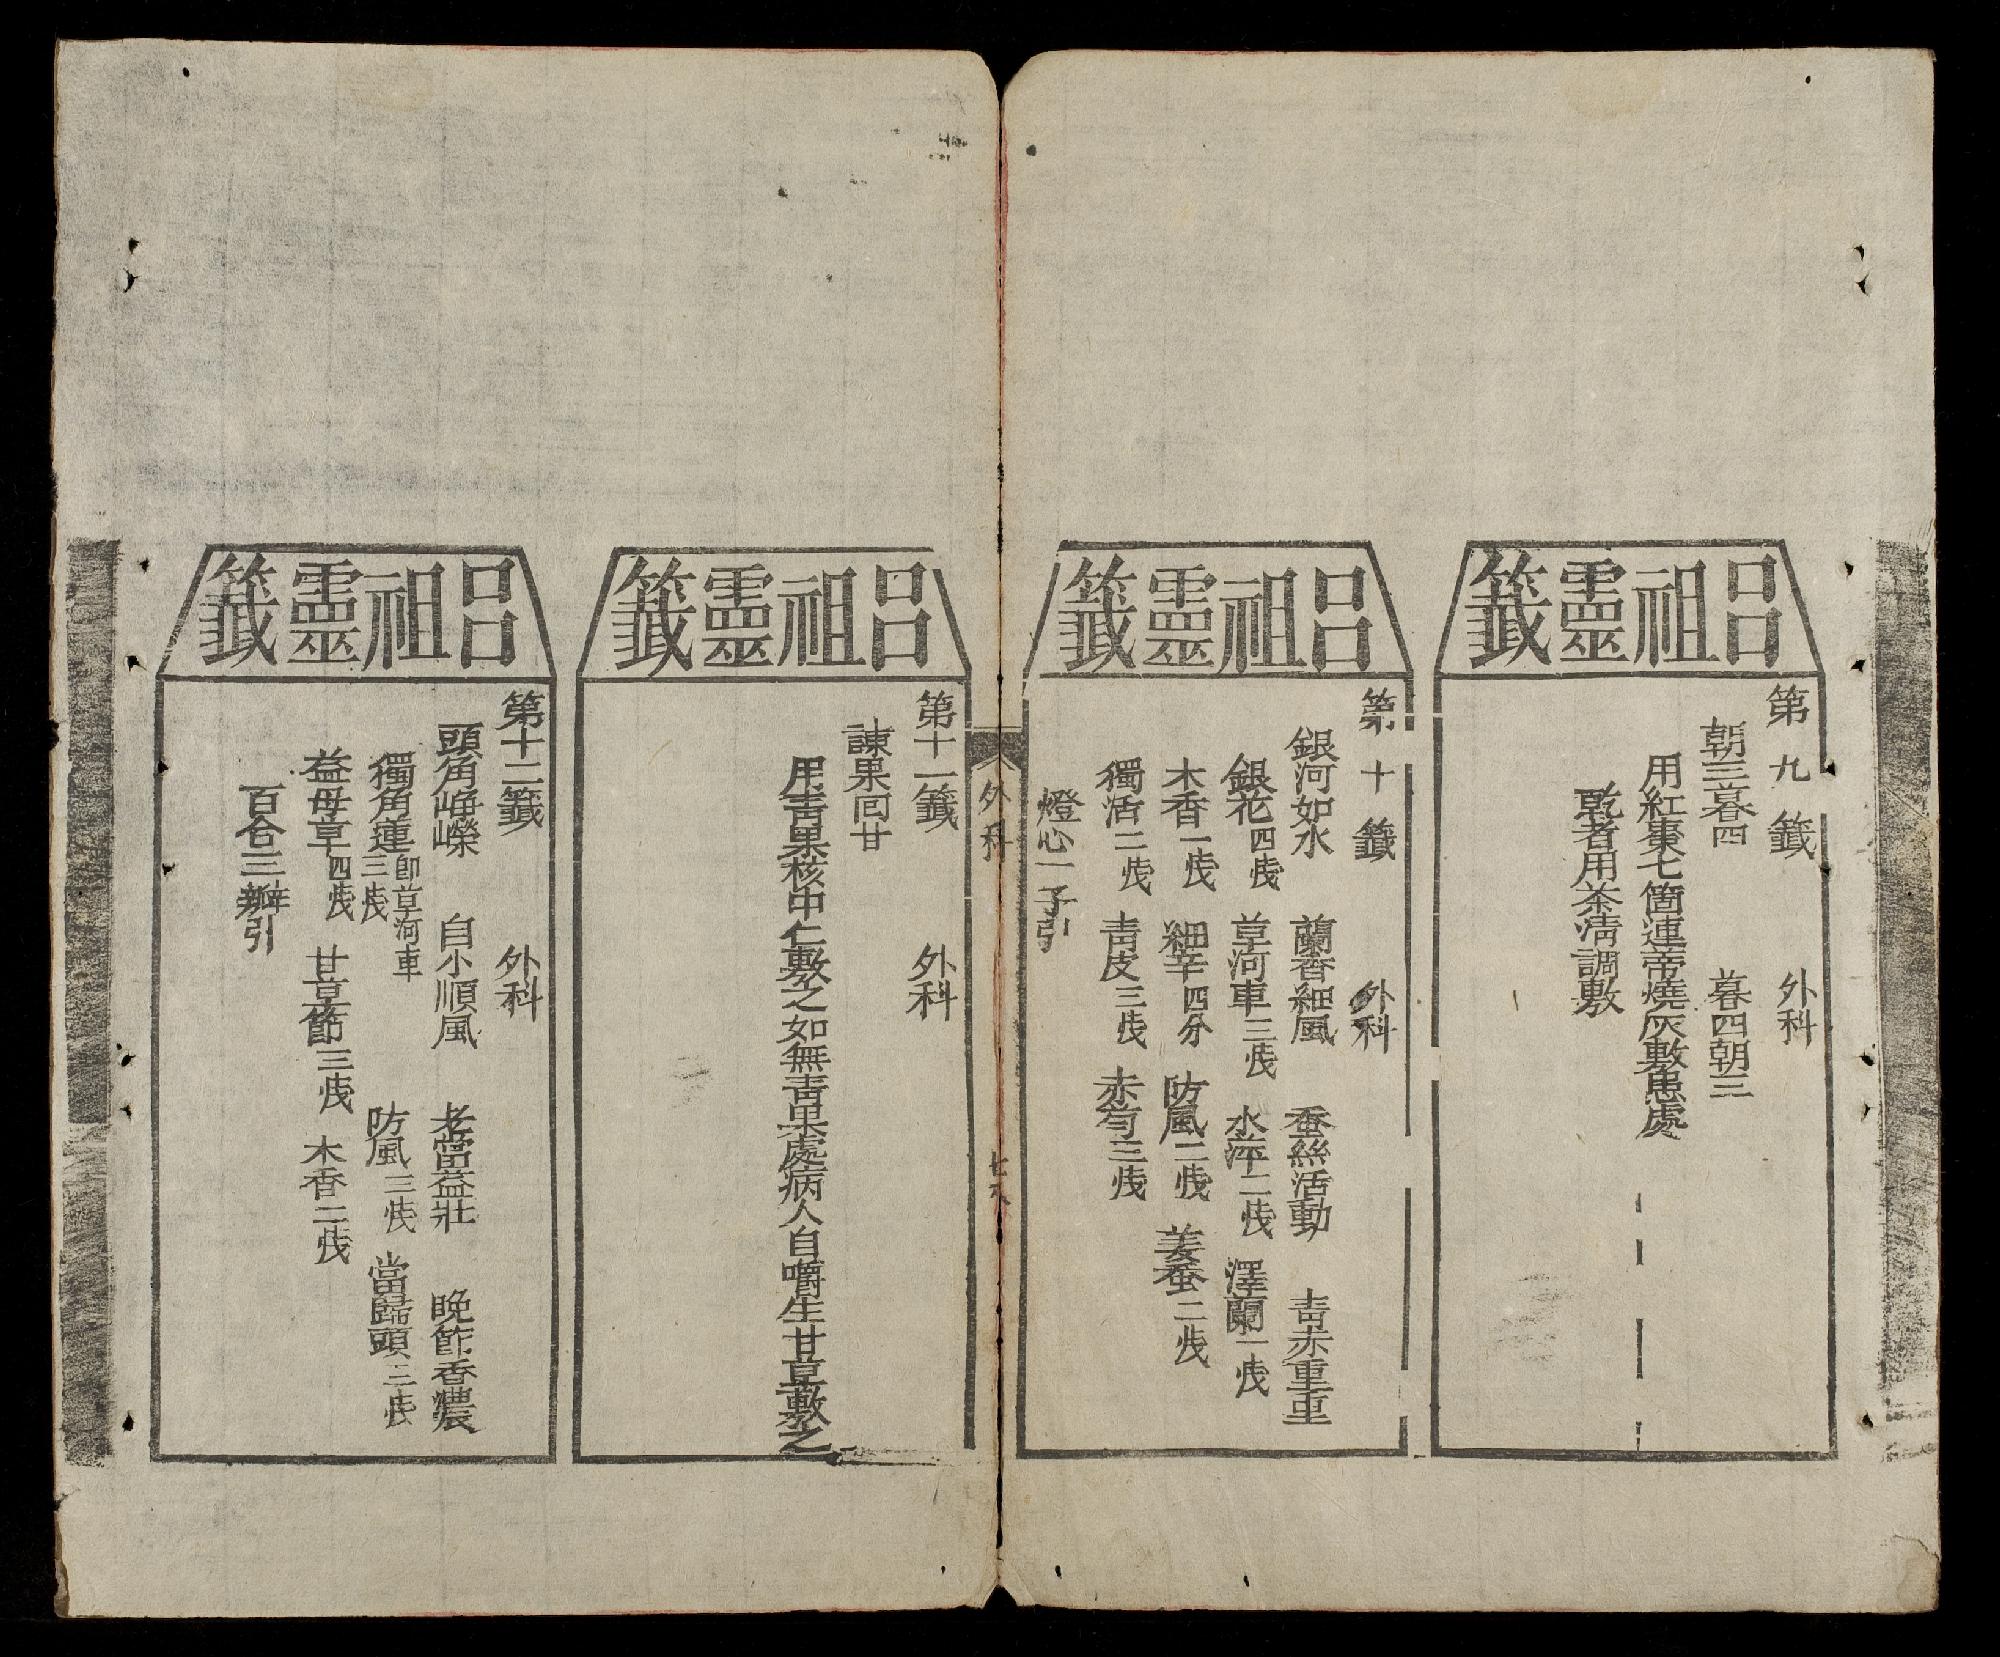 呂祖靈籤
第九籤　外科
朝三暮四　暮四朝三
用紅棗七箇連蒂燒灰敷患處
乾者用茶清調敷
呂祖靈籤
第十籤　外科
銀河如水　蘭香細風　蚕絲活動　青赤重重
銀花四戋　草河車三戋　水萍二戋　澤蘭一戋
木香一戋　細辛四分　防風二戋　姜蚕二戋
獨活二戋　青皮三戋　赤芍三戋
燈心一子引
外科
呂祖靈籤
第十一籤　外科
諫果回甘
用青果核中仁敷之如無青果處病人自嚼生甘草敷之
呂祖靈籤
第十二籤　外科
頭角崢嶸　自小順風　老當益壯　晚節香濃
獨角蓮即草河車三戋　防風三戋　當歸頭三戋
益母草四戋　甘草節三戋　木香二戋
百合三瓣引